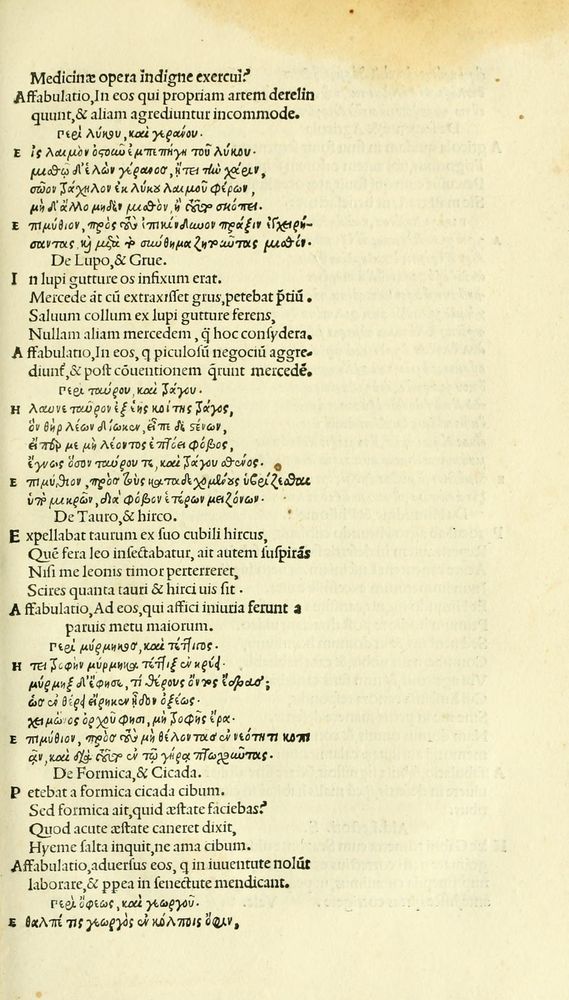 Medicinæ opera indigne exercui?
Affabulatio, In eos qui propriam artem derelin
quunt, & aliam agrediuntur incommode.
Περὶ λύκου, καὶ γεράνου.
Ε ἰς λαιμὸν ὀστοῦν ἐμπεπήγη τοῦ λύκου.
μισθῷ δ᾽ἑλὼν γέρανος, ᾔτει τὴν χάριν,
σῶον τράχηλον ἐκ λύκου λαιμοῦ φέρων,
μὴ δ᾽ἄλλο μηδὲν μισθὸν, ἢ τοῦτο σκόπει.
Ε πιμύθιον, πρὸς τοὺς ἐπικίνδυνον πρᾶξιν ἐγχειρή-
σαντας, καὶ μετὰ τὸ σύνθημα ζητοῦντας μισθόν.
De Lupo, & Grue.
I n lupi gutture os infixum erat.
Mercede āt cū extraxisset grus, petebat p̄tiū.
Saluum collum ex lupi gutture ferens,
Nullam aliam mercedem, q̄ hoc consydera.
A ffabulatio, In eos, q piculosū negociū aggre-
diunt̄, & post cōuentionem q̄runt mercedē.
Περὶ ταύρου, καὶ τράγου.
Η λαυνε ταῦρον ἐξ ἑῆς κοίτης τράγος,
ὃν θὴρ λέων διώκων, εἶπε δὲ στένων,
εἴπερ με μὴ λέοντος ἐπτόει φόβος,
ἔγνως ὅσον ταύρου τε, καὶ τράγου σθένος.
Ε πιμύθιον, πρὸς τοὺς καταδεχομένους ὑβρίζεσθαι
ὑπὸ μικρῶν, διὰ φόβον ἑτέρων μειζόνων.
De Tauro, & hirco.
E xpellabat taurum ex suo cubili hircus,
Quē fera leo insectabatur, ait autem suspirās
Nisi me leonis timor perterreret,
Scires quanta tauri & hirci uis sit.
A ffabulatio, Ad eos, qui affici iniuria ferunt a
paruis metu maiorum.
Περὶ μύρμηκος, καὶ τέττιγος.
Η τει τροφὴν μύρμηκα τέττιξ ἐν κρύει.
μύρμηξ δ᾽ἔφησε, τί θέρους ὄντος ἔδρασας;
ὡς ἐν θέρει εἴρηκεν ᾖδον ὀξέως.
χειμῶνος ὀρχοῦ φησι, μὴ τροφῆς ἔρα.
Ε πιμύθιον, πρὸς τοὺς μὴ θέλοντας ἐν νεότητι κοπι
ᾶν, καὶ διὰ τοῦτο ἐν τῷ γήρᾳ πτωχοῦντας.
De Formica, & Cicada.
P etebat a formica cicada cibum.
Sed formica ait, quid æstate faciebas?
Quod acute æstate caneret dixit,
Hyeme salta inquit, ne ama cibum.
Affabulatio, aduersus eos, q in iuuentute nolūt
laborare, & ppea in senectute mendicant.
Περὶ ὄφεως, καὶ γεωργοῦ.
Ε θαλπέ τις γεωργὸς ἐν κόλποις ὄφιν,